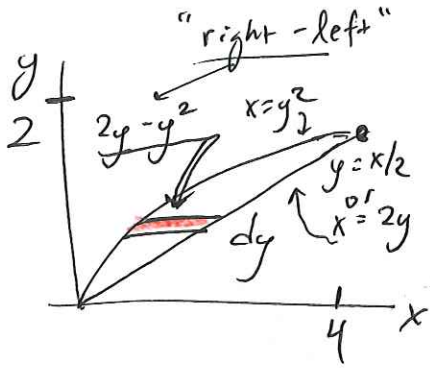 "right - left"
y
2
2y - y²
x = y²
y = x/2
or
x = 2y
dy
4
x